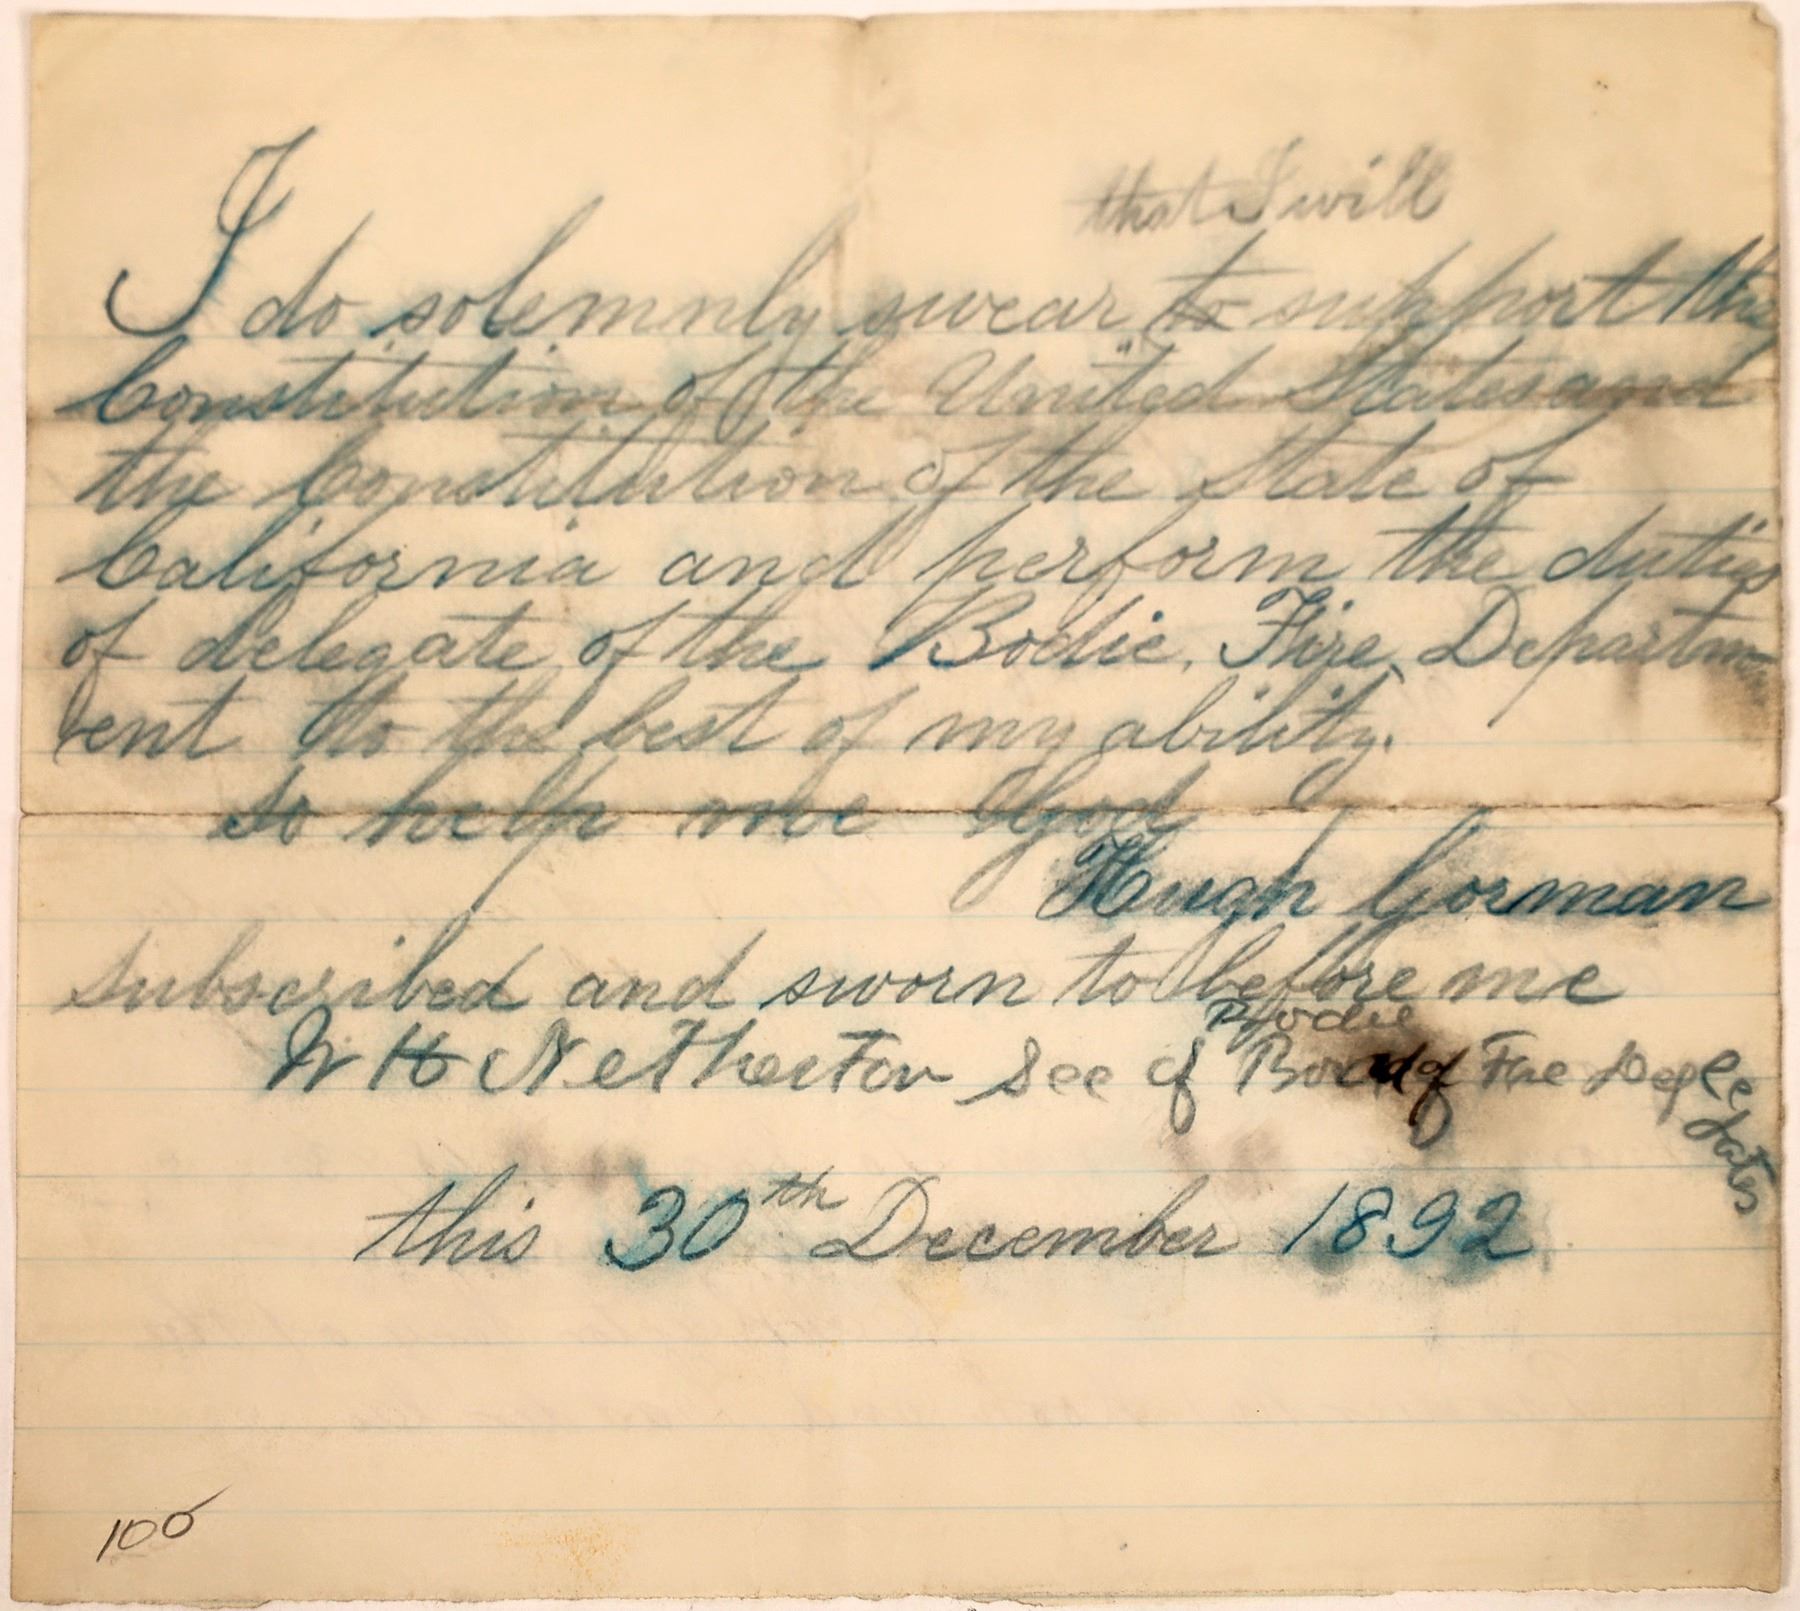 that I will
I do solemnly swear to support the
Constitution of the United States and
the Constitution of the State of
California and perform the duties
of delegate of the Bodie, Fire, Departm
ent to the best of my ability.
So help me God
Hugh Gorman
Subscribed and sworn to before me
Bodie
W H Netherton Sec of Board of Fire Delegates
this 30th December 1892
100